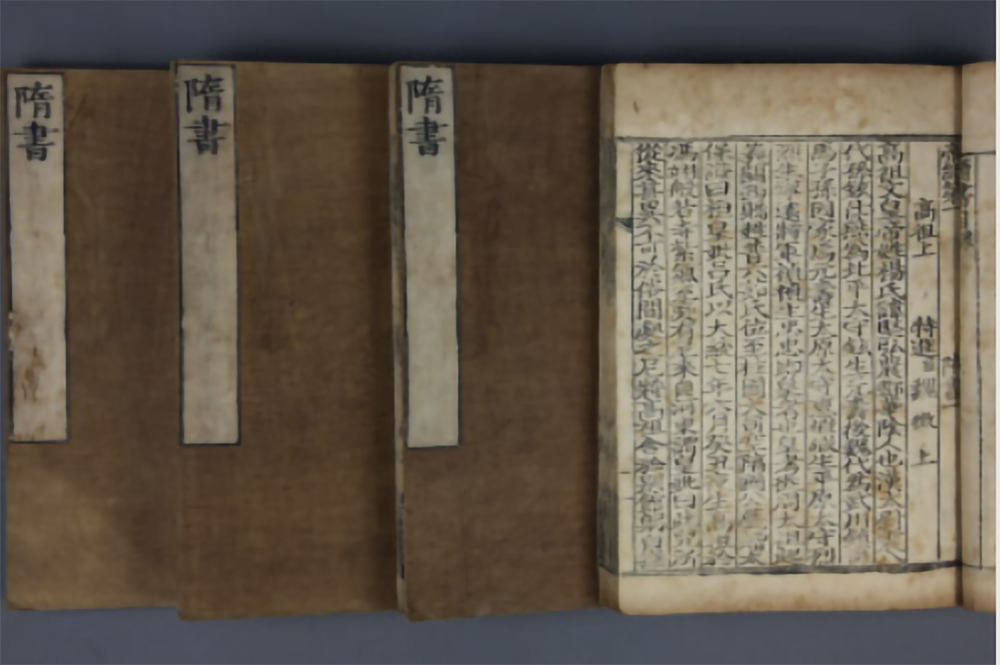 隋書
隋書
隋書
高祖上 特進臣魏徵上
高祖文皇帝姓楊氏諱堅弘農郡華陰人也漢太尉震八
代孫鉉仕燕為北平太守鉉生元壽後魏代為武川鎮
馬子孫因家焉元壽生太原太守惠嘏嘏生平原太守烈
烈生寧遠將軍禎禎生忠忠即皇考也皇考從周太祖起
義關西賜姓普六茹氏位至柱國大司空隋國公薨贈太
保諡曰桓皇妣呂氏以大統七年六月癸丑夜生高祖於
馮翊般若寺紫氣充庭有尼來自河東謂皇妣曰此兒所
從來甚異不可於俗間處之尼將高祖舍於別館躬自